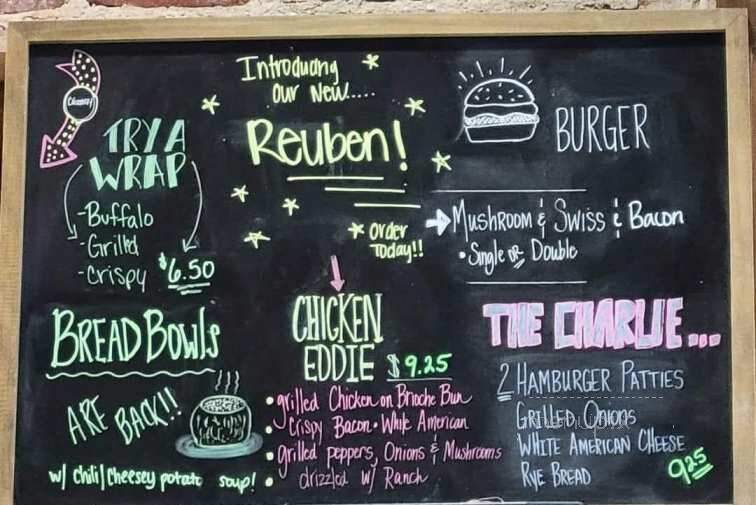 Cheesy!
TRY A
WRAP
- Buffalo
- Grilled
- Crispy
$6.50
Introducing
Our New.....
Reuben!
Order
Today!!
BURGER
Mushroom & Swiss & Bacon
• Single or Double
BREAD BOWLS
ARE BACK!!
w/ chili/cheesey potato soup!
CHICKEN
EDDIE $9.25
• grilled Chicken on Brioche Bun
• Crispy Bacon • White American
• grilled peppers, Onions & Mushrooms
• drizzled w/ Ranch
THE CHARLIE...
2 HAMBURGER PATTIES
GRILLED ONIONS
WHITE AMERICAN CHEESE
RYE BREAD
925